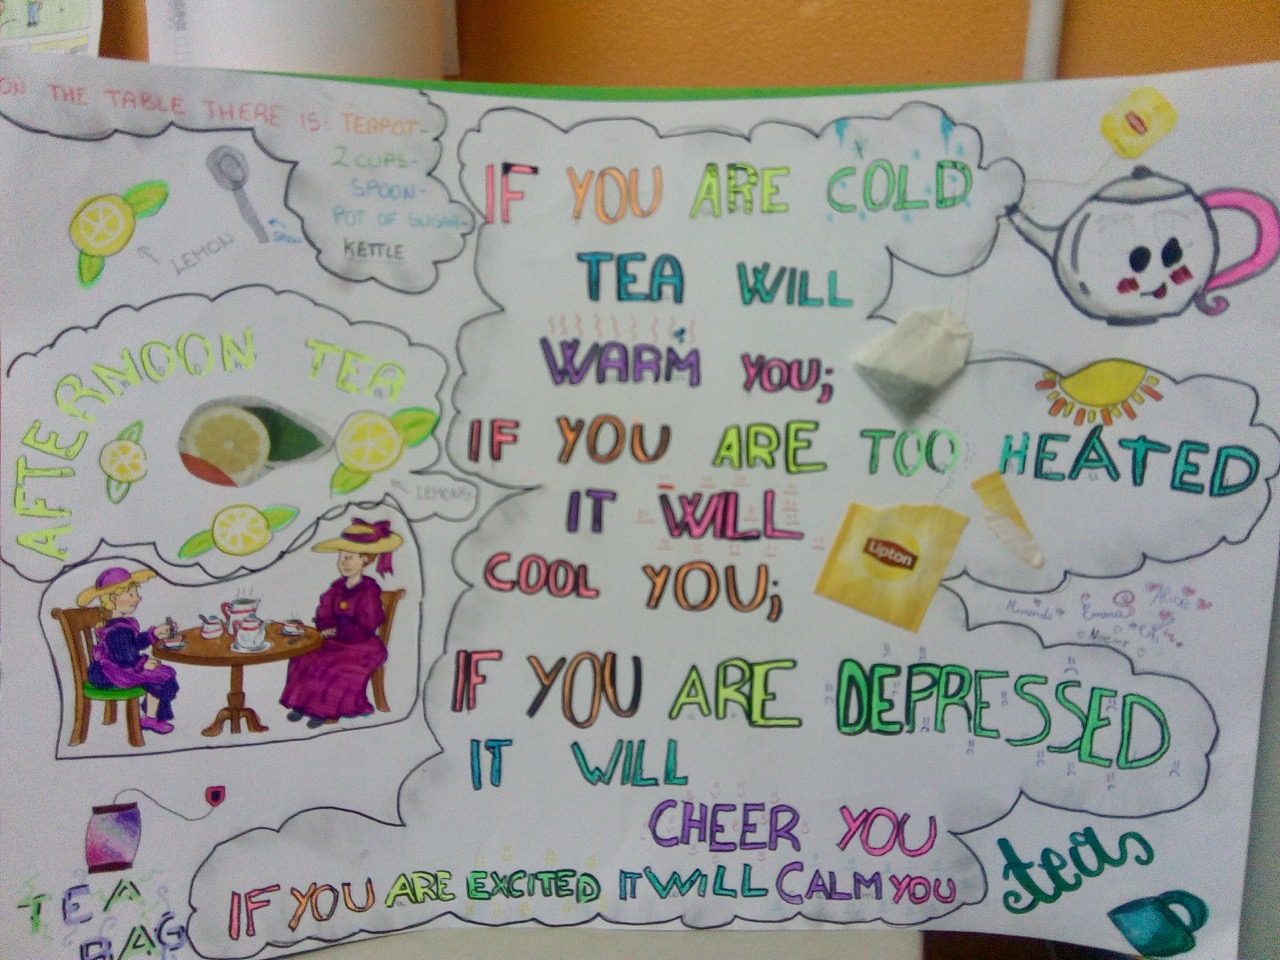 ON THE TABLE THERE IS: TEAPOT-
2 CUPS-
SPOON-
POT OF SUGAR-
KETTLE
LEMON
SPOON
AFTERNOON TEA
LEMONS
IF YOU ARE COLD
TEA WILL
WARM YOU;
IF YOU ARE TOO HEATED
IT WILL
COOL YOU;
IF YOU ARE DEPRESSED
IT WILL
CHEER YOU
IF YOU ARE EXCITED IT WILL CALM YOU
Lipton
Alice
Emma
Noemy
TEA
BAG
teas